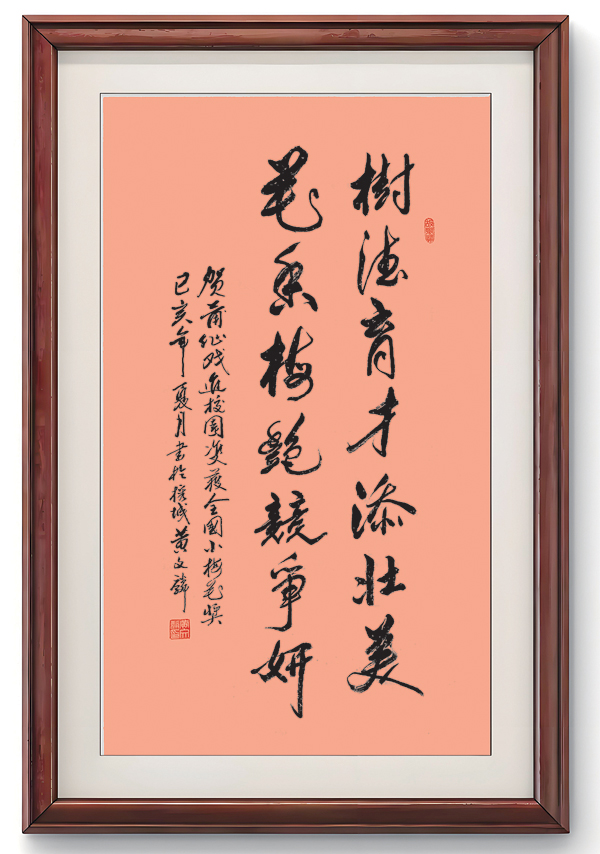 樹德育才添壯美
花香梅艷競爭妍
贺莆仙戏進校園双获全國小梅花奖
己亥年夏月書於榕城黄文鏻